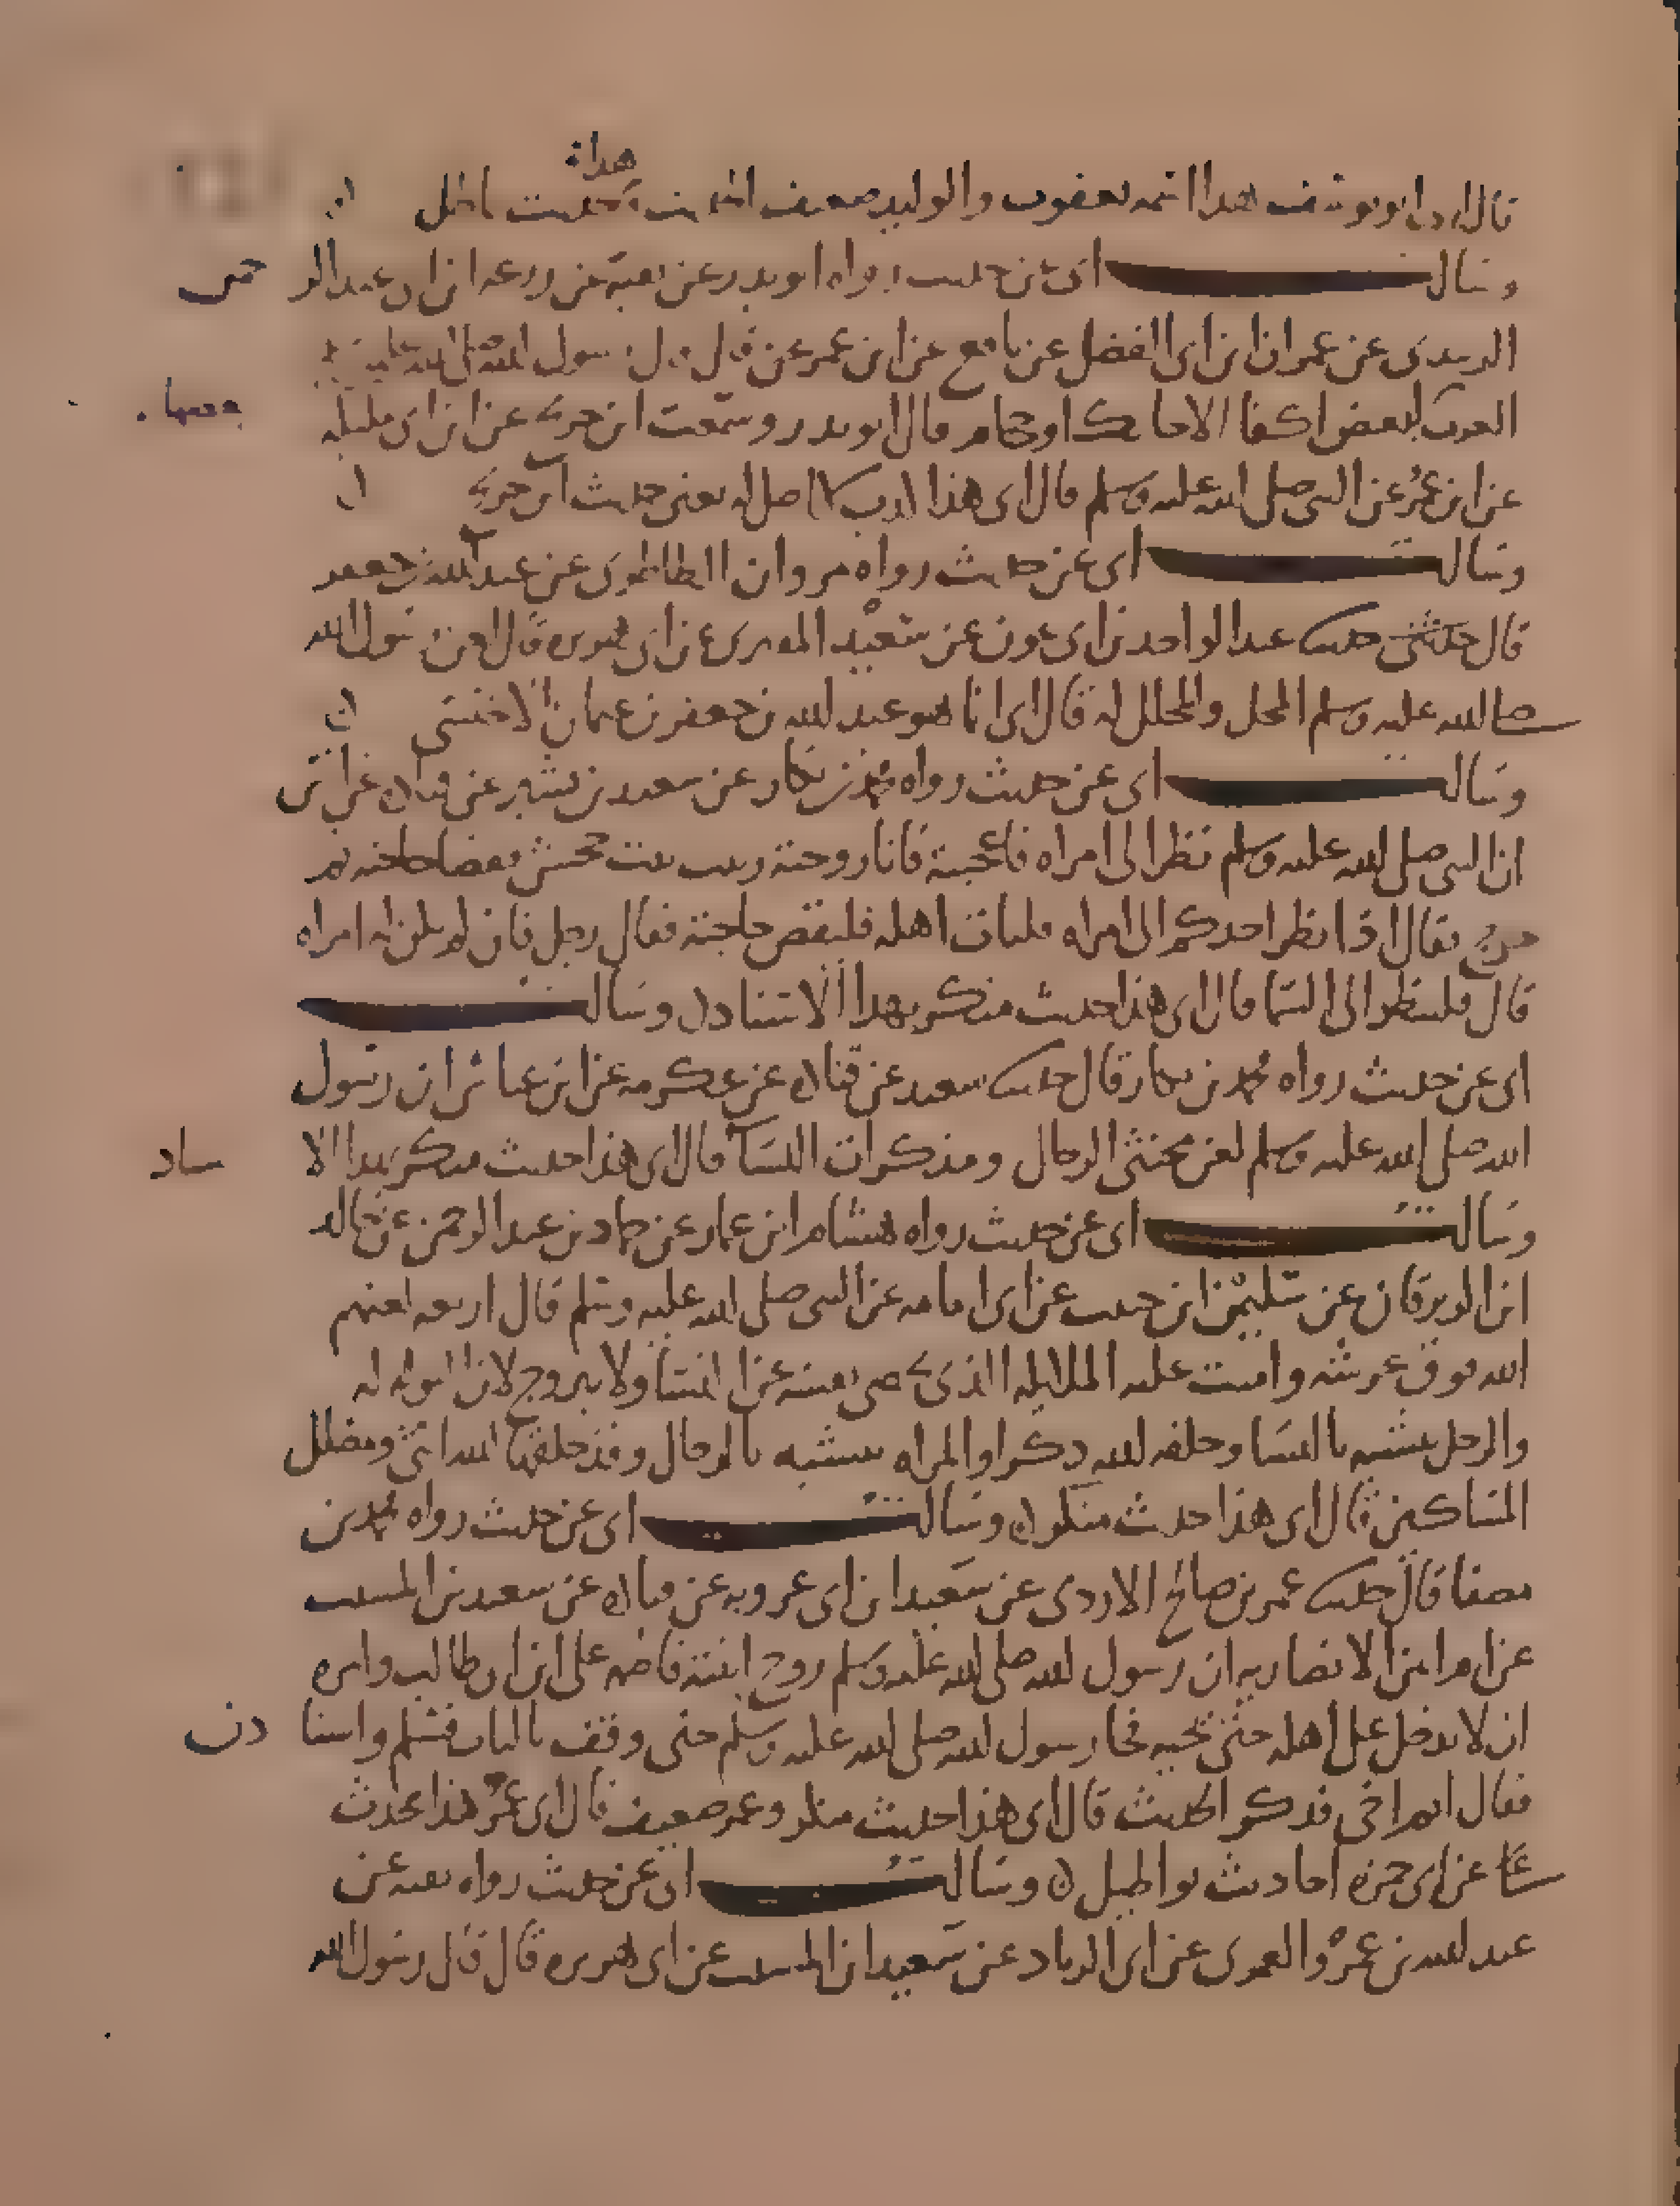 قال ابي ابو يوسف هذا اسمه يعقوب والوليد ضعيف الحديث هذا حديث باطل
وسالت ابي عن حديث رواه ابو بدر عن بقية عن زرعة ابن ابي عبد الرحمن
الزبيدي عن عمران ابن ابي الفضل عن نافع عن ابن عمر عن قال قال رسول الله صلى الله عليه
العرب بعضها لبعض اكفا الا حايك او حجام قال ابو بدر وسمعت ابن جريج عن ابن ابي مليكه
عن ابن عمر عن النبي صلى الله عليه وسلم قال ابي هذا كذب لا اصل له يعني حديث ابن جريج
وسالت ابي عن حديث رواه مروان الطاطري عن عبد الله بن جعفر
قال حدثني حدثنا عبد الواحد بن ابي عون عن سعيد المقبري عن ابي هريره قال لعن رسول الله
صلى الله عليه وسلم المحل والمحلل له قال ابي انما هو عبد الله بن جعفر بن عثمان الاخنسي
وسالت ابي عن حديث رواه محمد بن بكار عن سعيد بن بشير عن قتاده عن انس
ان النبي صلى الله عليه وسلم نظر الى امراه فاعجبته فاتا زوجته زينب بنت جحش فقضا حاجته ثم
خرج فقال اذا نظر احدكم الى امراه فليات اهله فليقض حاجته فقال رجل فان لم يكن له امراه
قال فلينظر الى السما قال ابي هذا حديث منكر بهذا الاسناد وسالت
ابي عن حديث رواه محمد بن بكار قال حدثنا سعيد عن قتاده عن عكرمه عن ابن عباس ان رسول
الله صلى الله عليه وسلم لعن مخنثي الرجال ومذكرات النسا قال ابي هذا حديث منكر بهذا الاسناد
وسالت ابي عن حديث رواه هشام ابن عمار عن حماد بن عبد الرحمن عن خالد
ابن الزبرقان عن سليمن ابن حبيب عن ابي امامه عن النبي صلى الله عليه وسلم قال اربعه لعنهم
الله فوق عرشه وامنت عليه الملايكه الذي يحصي نفسه عن النسا ولا يتزوج لان لا يولد له
والرجل يتشبه بالنسا وخلقه الله ذكرا والمراه تتشبه بالرجال وقد خلقها الله انثى ومضلل
المساكين قال ابي هذا حديث منكر وسالت ابي عن حديث رواه محمد بن
مصفا قال حدثنا عمر بن صالح الازدي عن سعيد ابن ابي عروبه عن قتاده عن سعيد بن المسيب
عن ام ايمن الانصاريه ان رسول الله صلى الله عليه وسلم زوج ابنته فاطمه علي ابن ابي طالب وامره
ان لا يدخل على اهله حتى تجيه فجا رسول الله صلى الله عليه وسلم حتى وقف بالباب فسلم واستاذن
فقال اثم اخي فذكر الحديث قال ابي هذا حديث منكر وعمر ضعيف قال ابي عمر هذا يحدث
عن ابي جمره احاديث بواطيل وسالت ابي عن حديث رواه بقيه عن
عبد الله بن عمر والعمري عن ابي الزناد عن سعيد ابن المسيب عن ابي هريره قال قال رسول الله